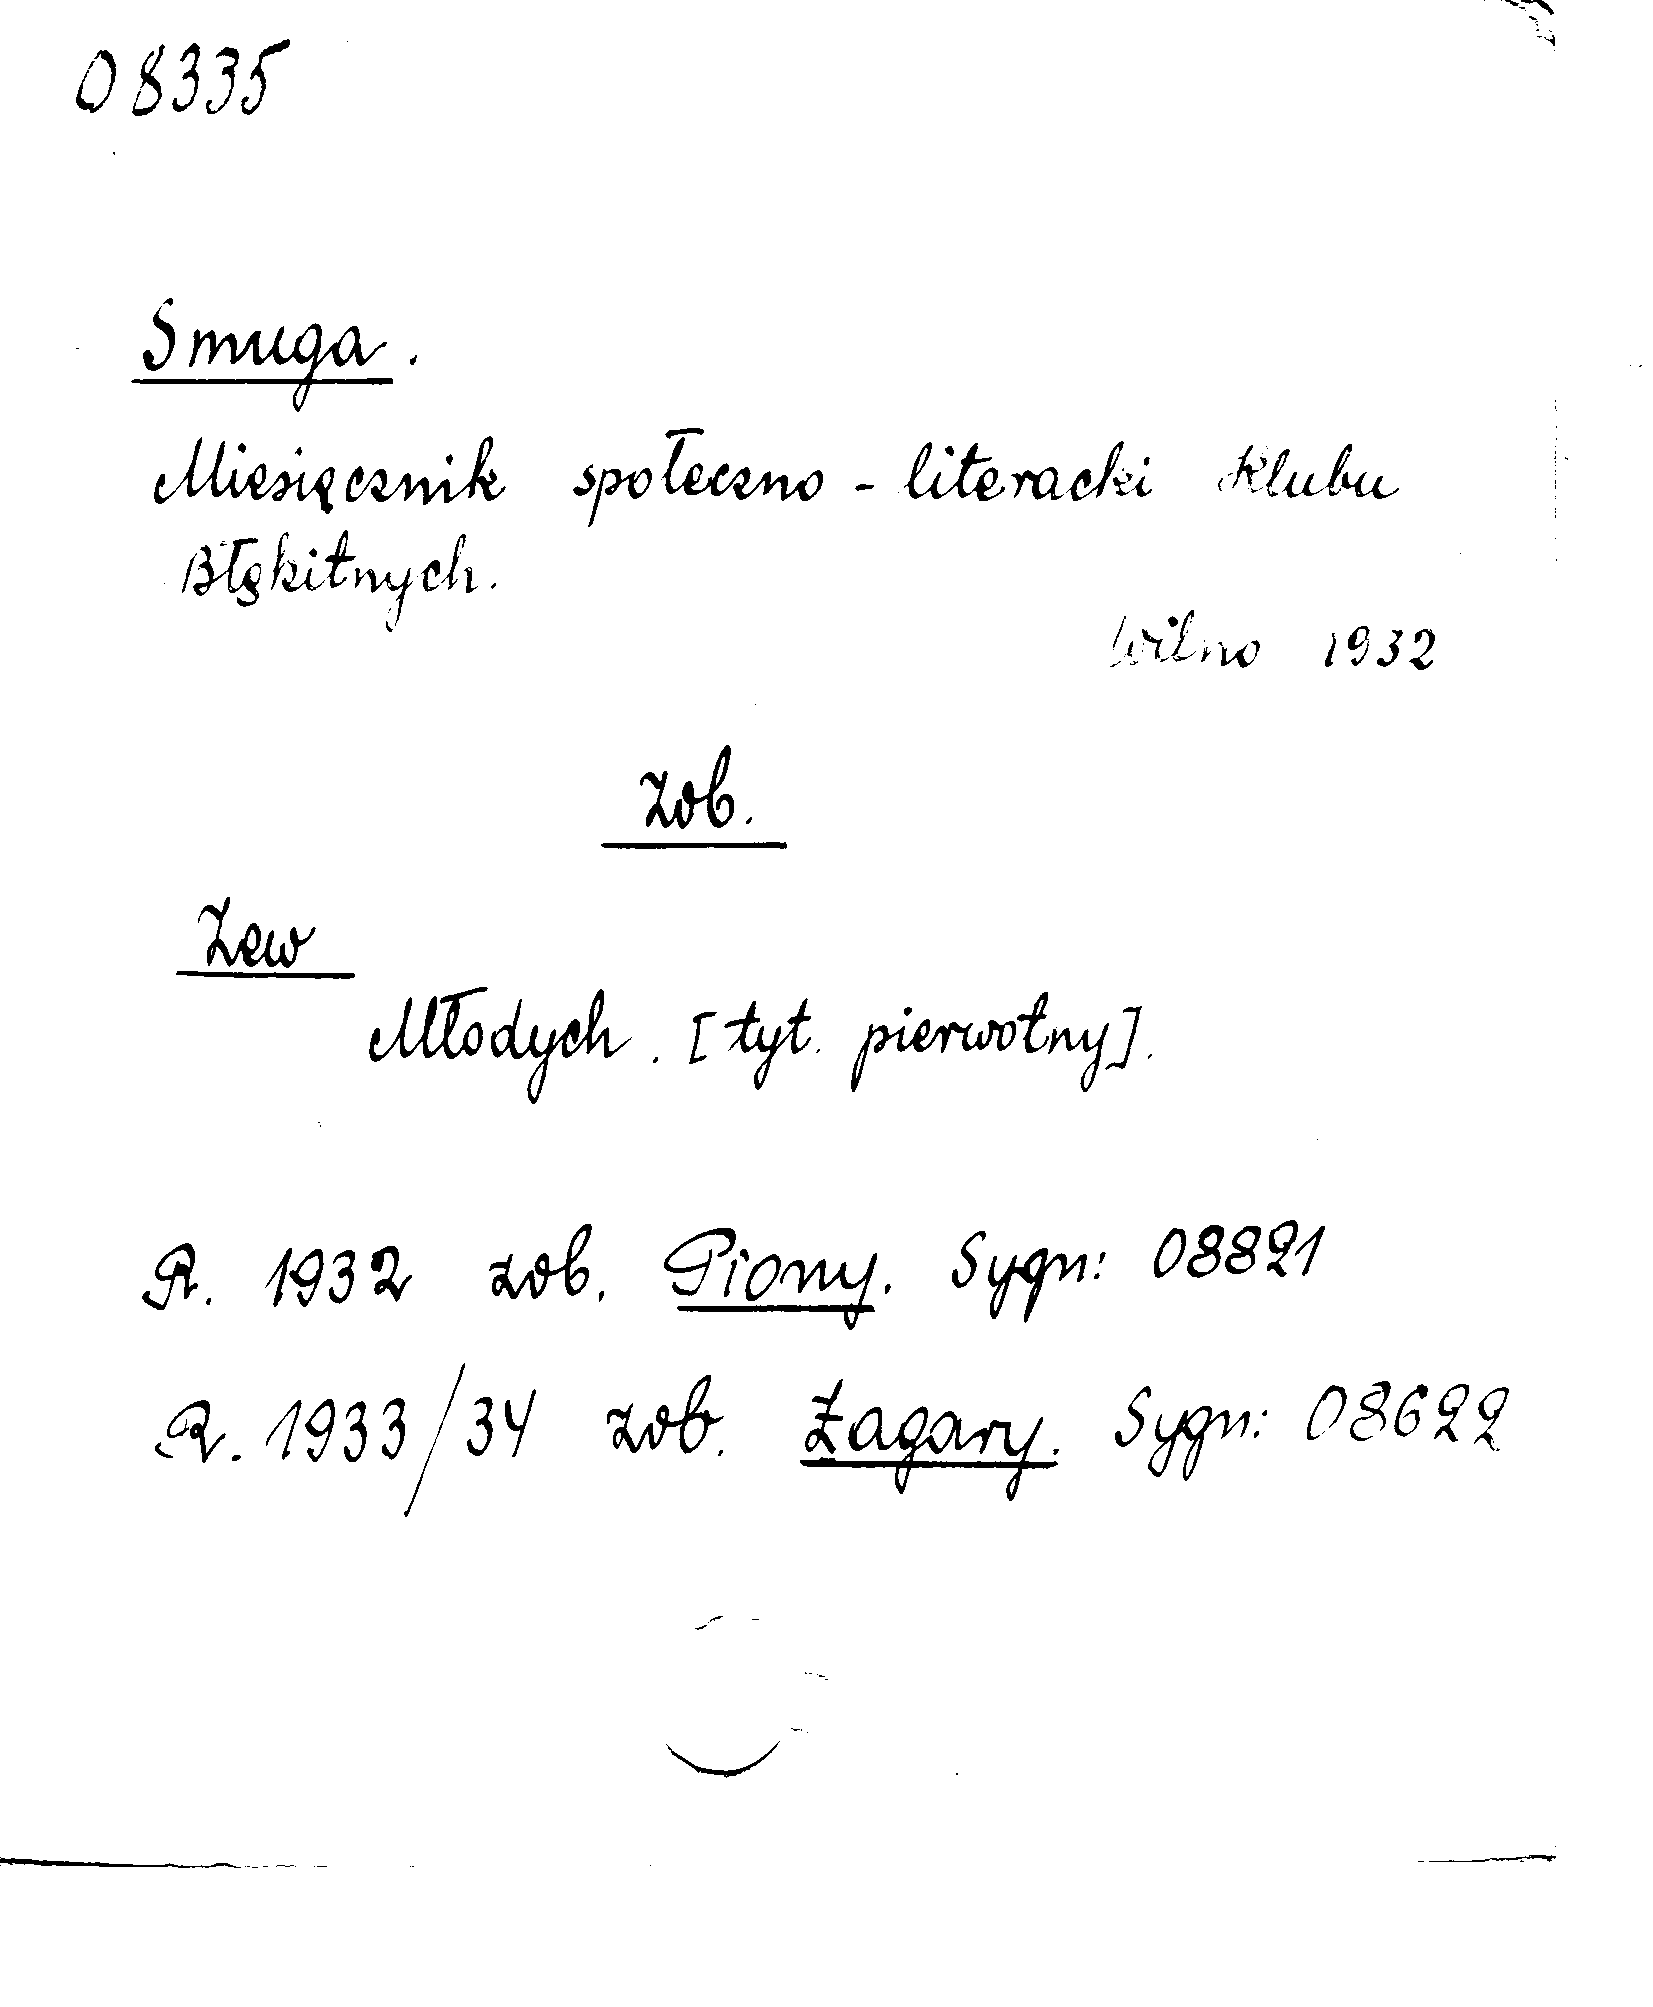 08335
Smuga.
Miesięcznik społeczno-literacki Klubu
Błękitnych.
Wilno 1932
Zob.
Zew
Młodych. [tyt. pierwotny].
R. 1932 zob. Piony. Sygn: 08821
R. 1933/34 zob. Żagary. Sygn: 08622